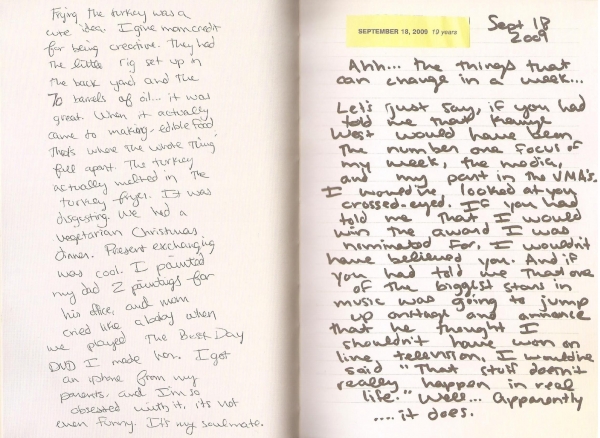 Frying the turkey was a
cute idea. I give mom credit
for being creative. They had
the little rig set up in
the back yard and the
70 barrels of oil... it was
great. When it actually
came to making edible food,
That's where the whole thing
fell apart. The turkey
actually melted in the
turkey fryer. It was
disgusting. We had a
vegetarian Christmas
dinner. Present exchanging
was cool. I painted
my dad 2 paintings for
his office, and mom
cried like a baby when
we played The Best Day
DVD I made her. I got
an iphone from my
parents, and I'm so
obsessed with it, it's not
even funny. It's my soulmate.
SEPTEMBER 18, 2009 19 years
Sept 18
2009
Ahh... the things that
can change in a week...
Let's just say, if you had
told me that Kanye
West would have been
the number one focus of
my week, the media,
and my part in the VMA's.
I would've looked at you
crossed-eyed. If you had
told me that I would
win the award I was
nominated for, I wouldn't
have believed you. And if
you had told me that one
of the biggest stars in
music was going to jump
up onstage and announce
that he thought I
shouldn't have won on
live television, I would've
said "That stuff doesn't
really happen in real
life." Well... apparently
.... it does.